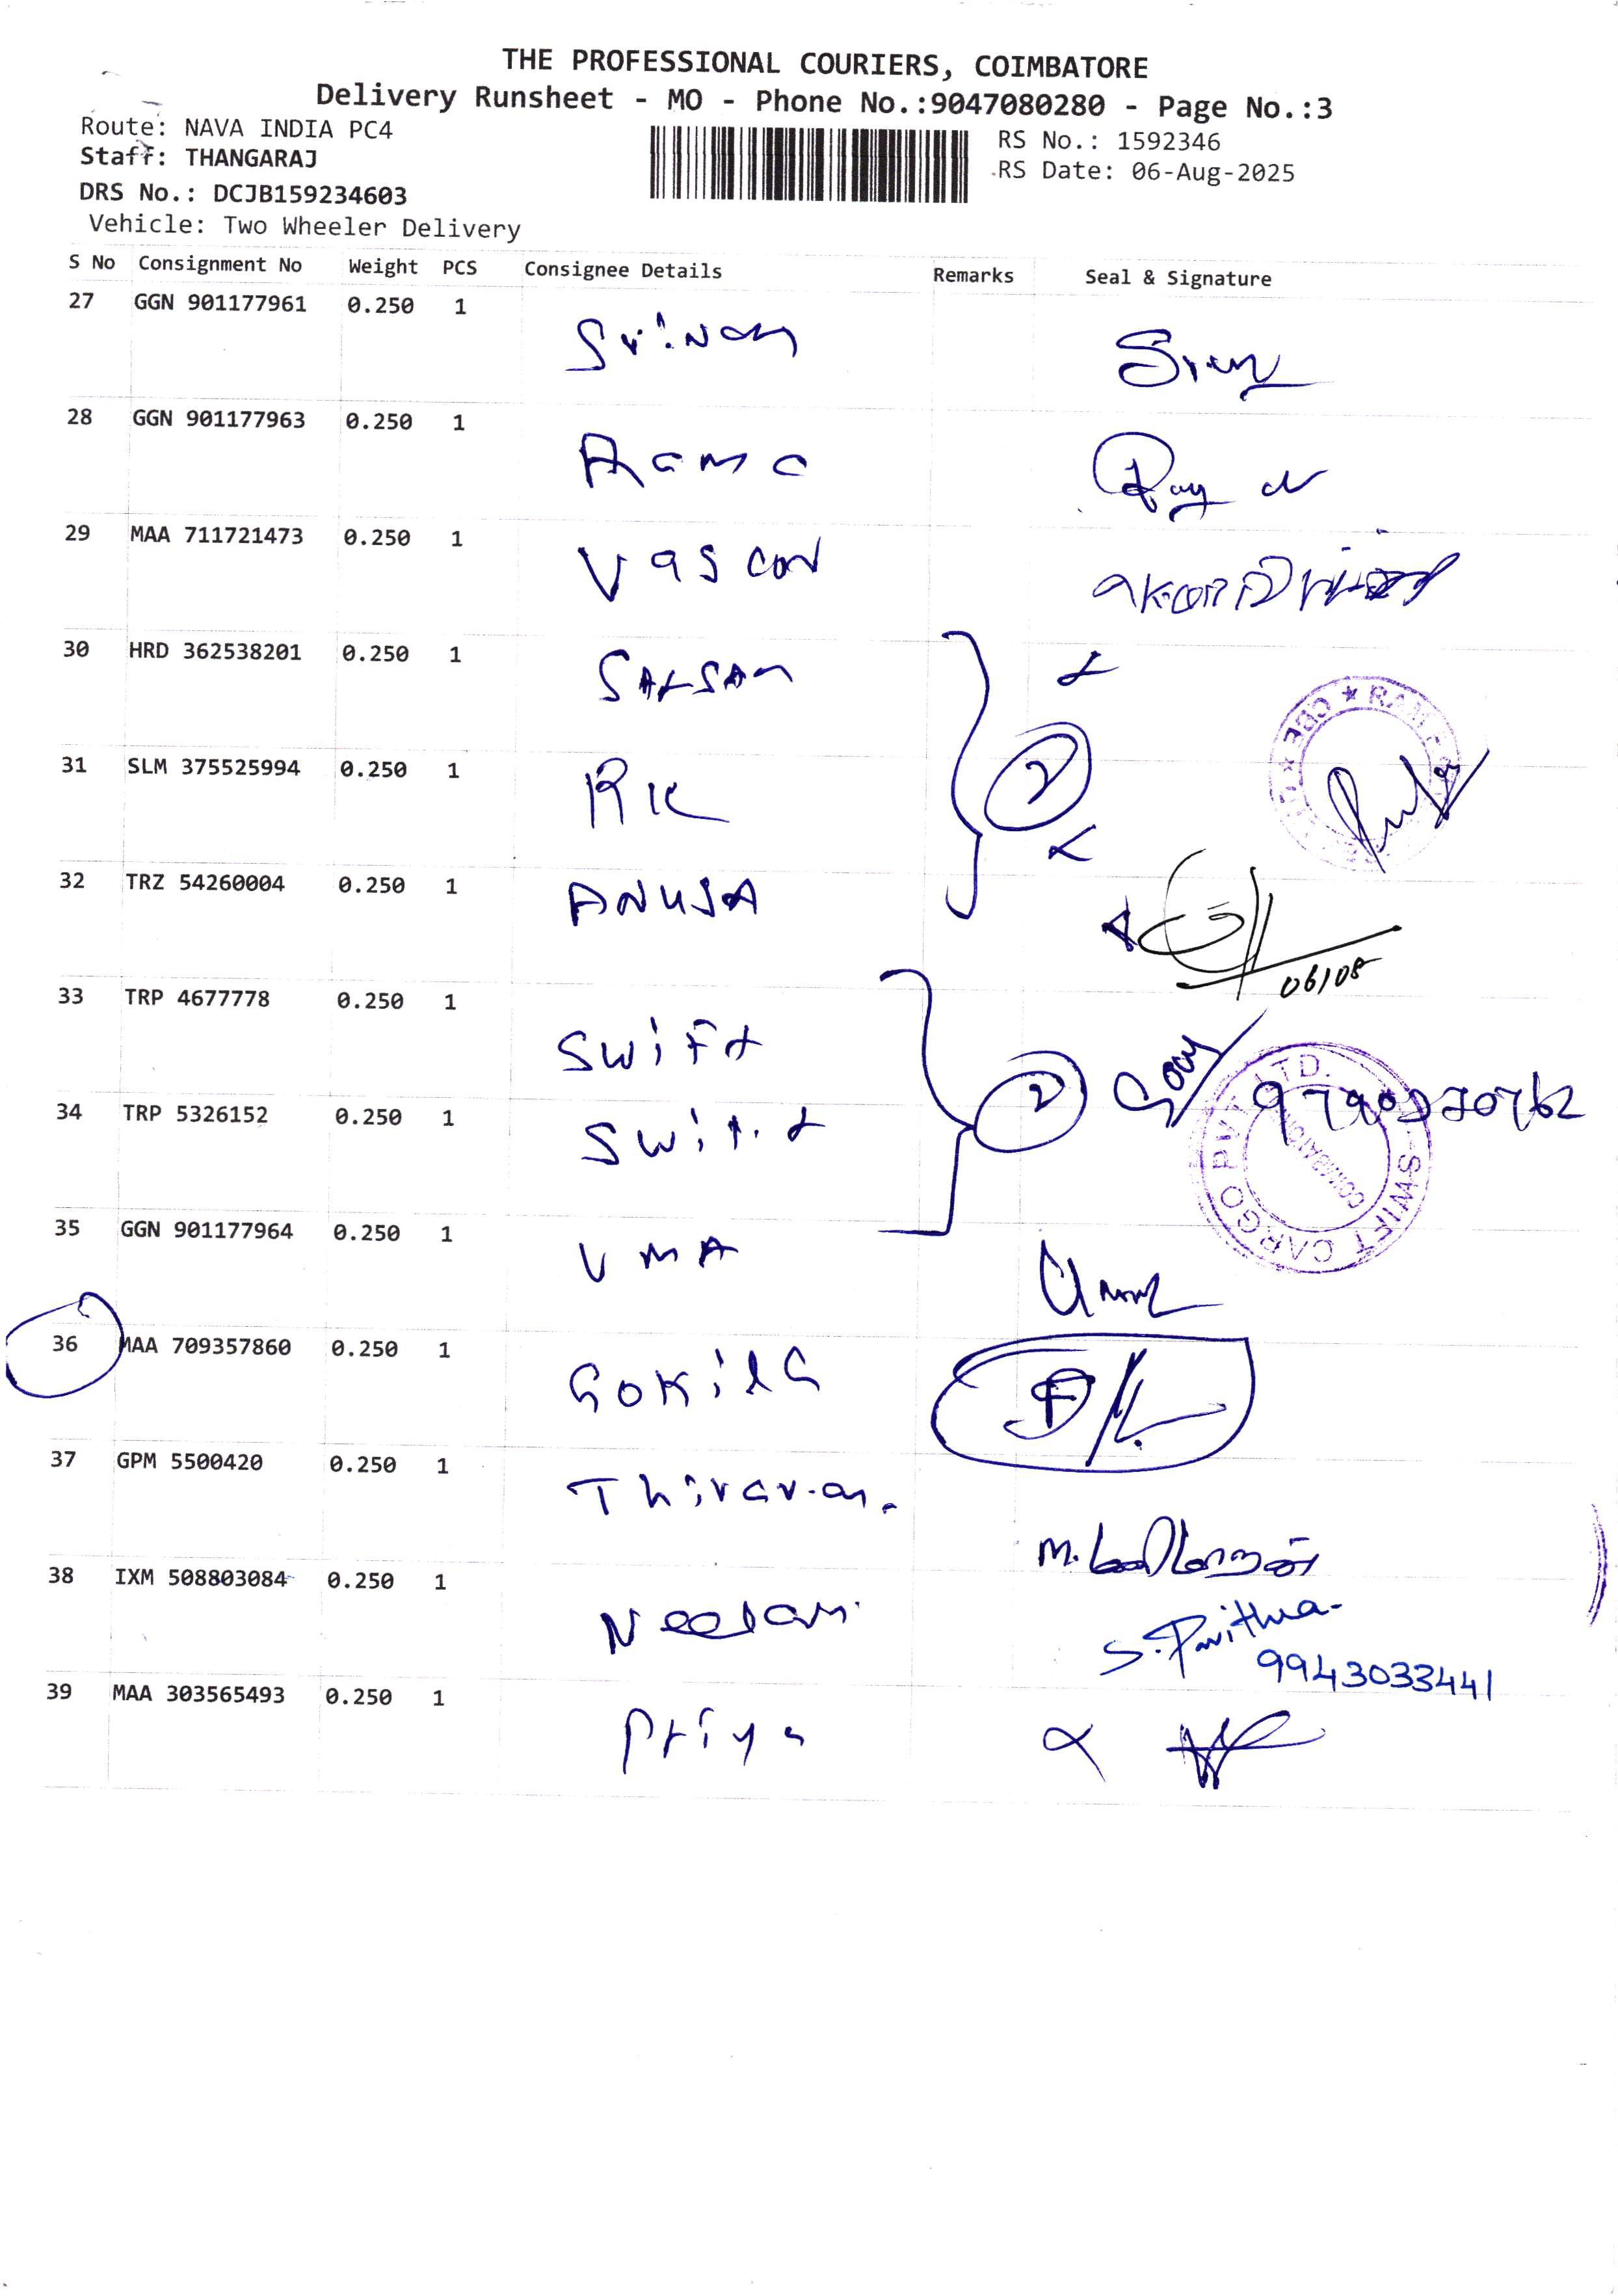 THE PROFESSIONAL COURIERS, COIMBATORE
Delivery Runsheet - MO - Phone No.:9047080280 - Page No.:3
Route: NAVA INDIA PC4
RS No.: 1592346
Staff: THANGARAJ
RS Date: 06-Aug-2025
DRS No.: DCJB159234603
Vehicle: Two Wheeler Delivery
S No Consignment No Weight PCS Consignee Details Remarks Seal & Signature
27 GGN 901177961 0.250 1
28 GGN 901177963 0.250 1 Rama
29 MAA 711721473 0.250 1
30 HRD 362538201 0.250 1
31 SLM 375525994 0.250 1 RK
2
32 TRZ 54260004 0.250 1 ANUSA
06/08
33 TRP 4677778 0.250 1 Swift
2
34 TRP 5326152 0.250 1 Swift
SWIFT CARGO PVT. LTD.
COIMBATORE
35 GGN 901177964 0.250 1 UMA
36 MAA 709357860 0.250 1 Gokila
37 GPM 5500420 0.250 1
38 IXM 508803084 0.250 1 Neelam
S. Pavithra
9943033441
39 MAA 303565493 0.250 1 Priya